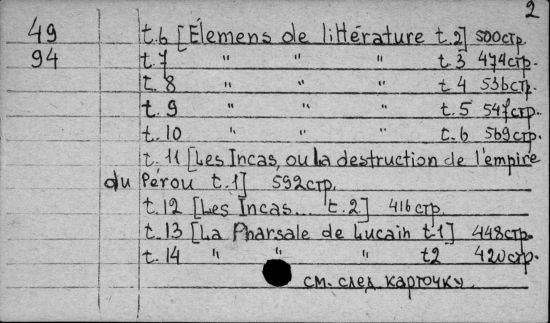 2
49 t.6 [Élemens de littérature t.2] 500стр.
94 t.7 " " " t.3 474стр.
t.8 " " " t 4 536стр.
t.9 " " " t.5 547стр.
t.10 " " " t.6 569стр.
t.11 [Les Incas, ou la destruction de l'empire
du Pérou t.1] 592стр.
t.12 [Les Incas... t.2] 416стр.
t.13 [La Pharsale de Lucain t-1] 448стр.
t.14 " " " t2 420стр.
см. след карточку.